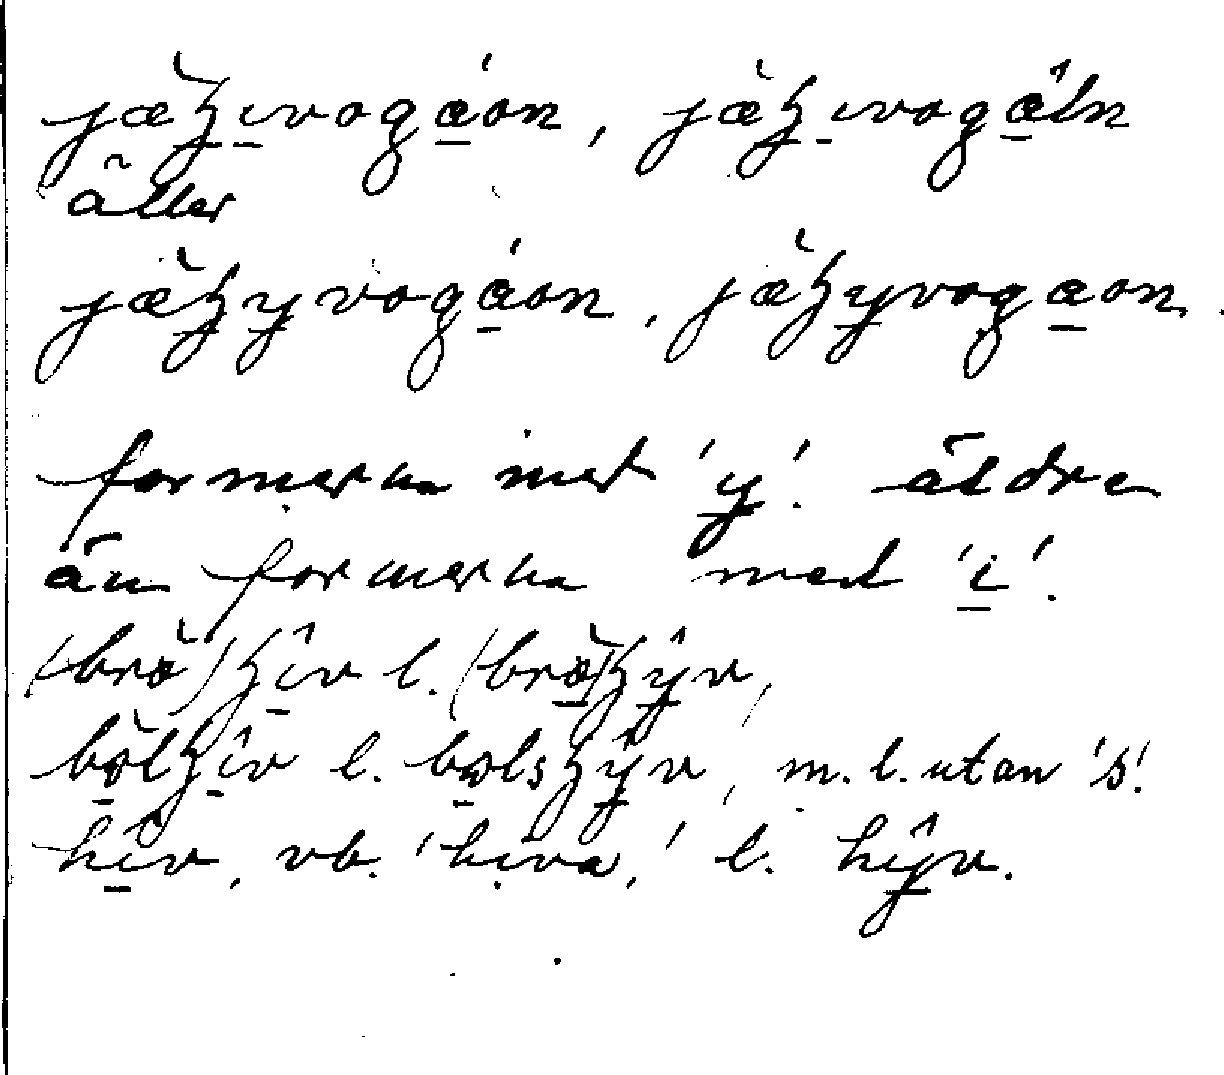 jæ̀ʒ̱i̱vogá̱on, jæ̀ʒ̱i̱vogâ̱ln
äller
jæ̀ʒ̱y̱vogá̱on, jæ̀ʒ̱y̱voga̱on.
formerna med 'y̱'. äldre
än formerna med 'i̱'.
(brò)ʒî̱v l. (brò̱)ʒŷ̱v,
bò̱lʒ̱î̱v l. bo̱lsʒŷ̱v, m. l. utan 's'.
hî̱v, vb. 'hiva,' l. hŷ̱v.